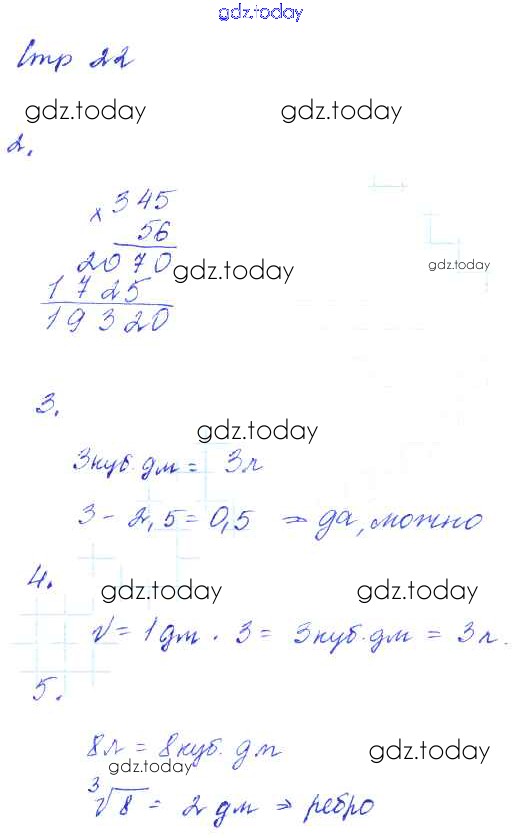 gdz.today
Стр 22
gdz.today gdz.today
2.
× 345
56
2070 gdz.today gdz.today
1725
19320
3.
gdz.today
3куб.дм = 3л
3 - 2,5 = 0,5 ⇒ да, можно
4.
gdz.today gdz.today
V = 1дм · 3 = 3куб.дм = 3л.
5.
8л = 8куб.дм gdz.today
gdz.today
∛8 = 2 дм ⇒ ребро